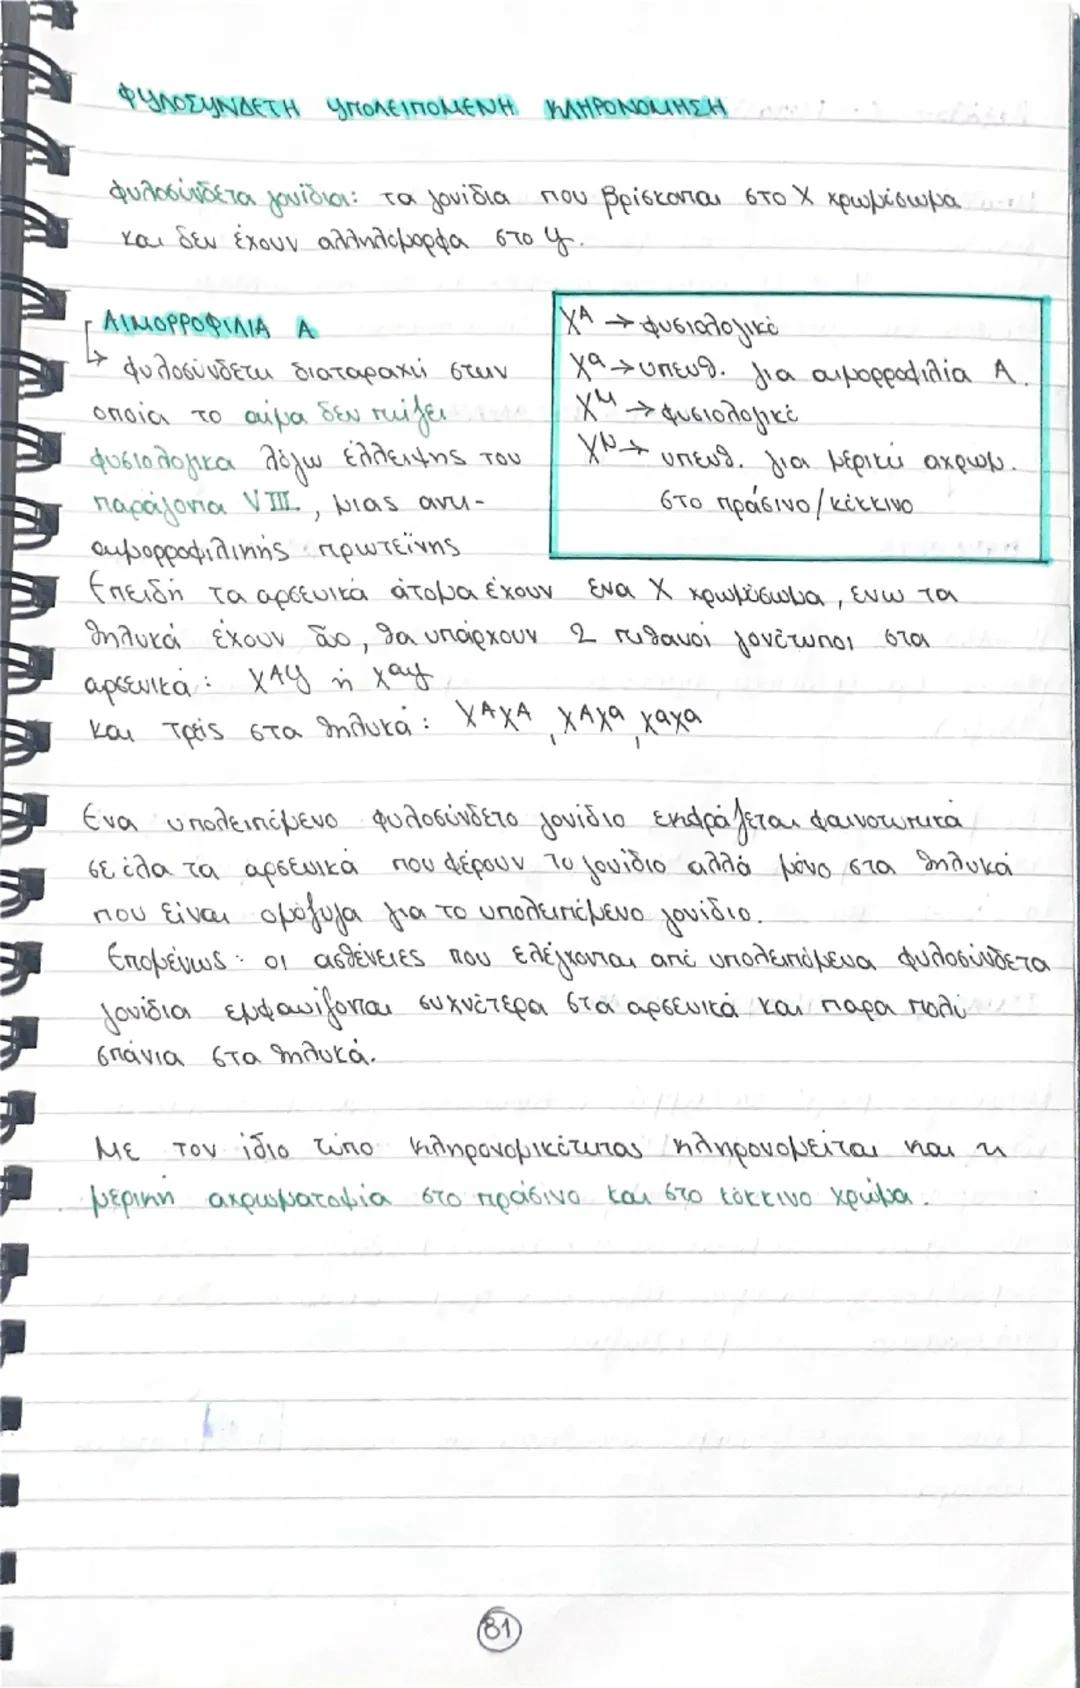 ΦΥΛΟΣΥΝΔΕΤΗ ΥΠΟΛΕΙΠΟΜΕΝΗ ΚΛΗΡΟΝΟΜΗΣΗ
φυλοσύνδετα γονίδια: τα γονίδια που βρίσκονται στο Χ χρωμόσωμα
και δεν έχουν αλληλόμορφα στο Υ.
ΑΙΜΟΡΡΟΦΙΛΙΑ Α
↳ φυλοσύνδετη διαταραχή στην
οποία το αίμα δεν πήζει
φυσιολογικα λόγω έλλειψης του
παράγοντα VIII., μιας αντι-
αιμορροφιλικής πρωτεΐνης
Χᴬ → φυσιολογικό
Χᵃ → υπευθ. για αιμορροφιλία Α.
Χᴹ → φυσιολογικό
Χᴺ → υπευθ. για μερική αχρωμ.
στο πράσινο/κόκκινο
Επειδή τα αρσενικά άτομα έχουν ένα Χ χρωμόσωμα, ενω τα
θηλυκά έχουν δύο, θα υπάρχουν 2 πιθανοί γονότυποι στα
αρσενικά: ΧᴬΥ ή ΧᵃΥ
και τρείς στα θηλυκά: ΧᴬΧᴬ, ΧᴬΧᵃ, ΧᵃΧᵃ
Ένα υπολειπόμενο φυλοσύνδετο γονίδιο εκφράζεται φαινοτυπικά
σε όλα τα αρσενικά που φέρουν το γονίδιο αλλά μόνο στα θηλυκά
που είναι ομόζυγα για το υπολειπόμενο γονίδιο.
Επομένως: οι ασθένειες που ελέγχονται από υπολειπόμενα φυλοσύνδετα
γονίδια εμφανίζονται συχνότερα στα αρσενικά και παρα πολύ
σπάνια στα θηλυκά.
Με τον ίδιο τύπο κληρονομικότητας κληρονομείται και η
μερική αχρωματοψία στο πράσινο και στο κόκκινο χρώμα.
81